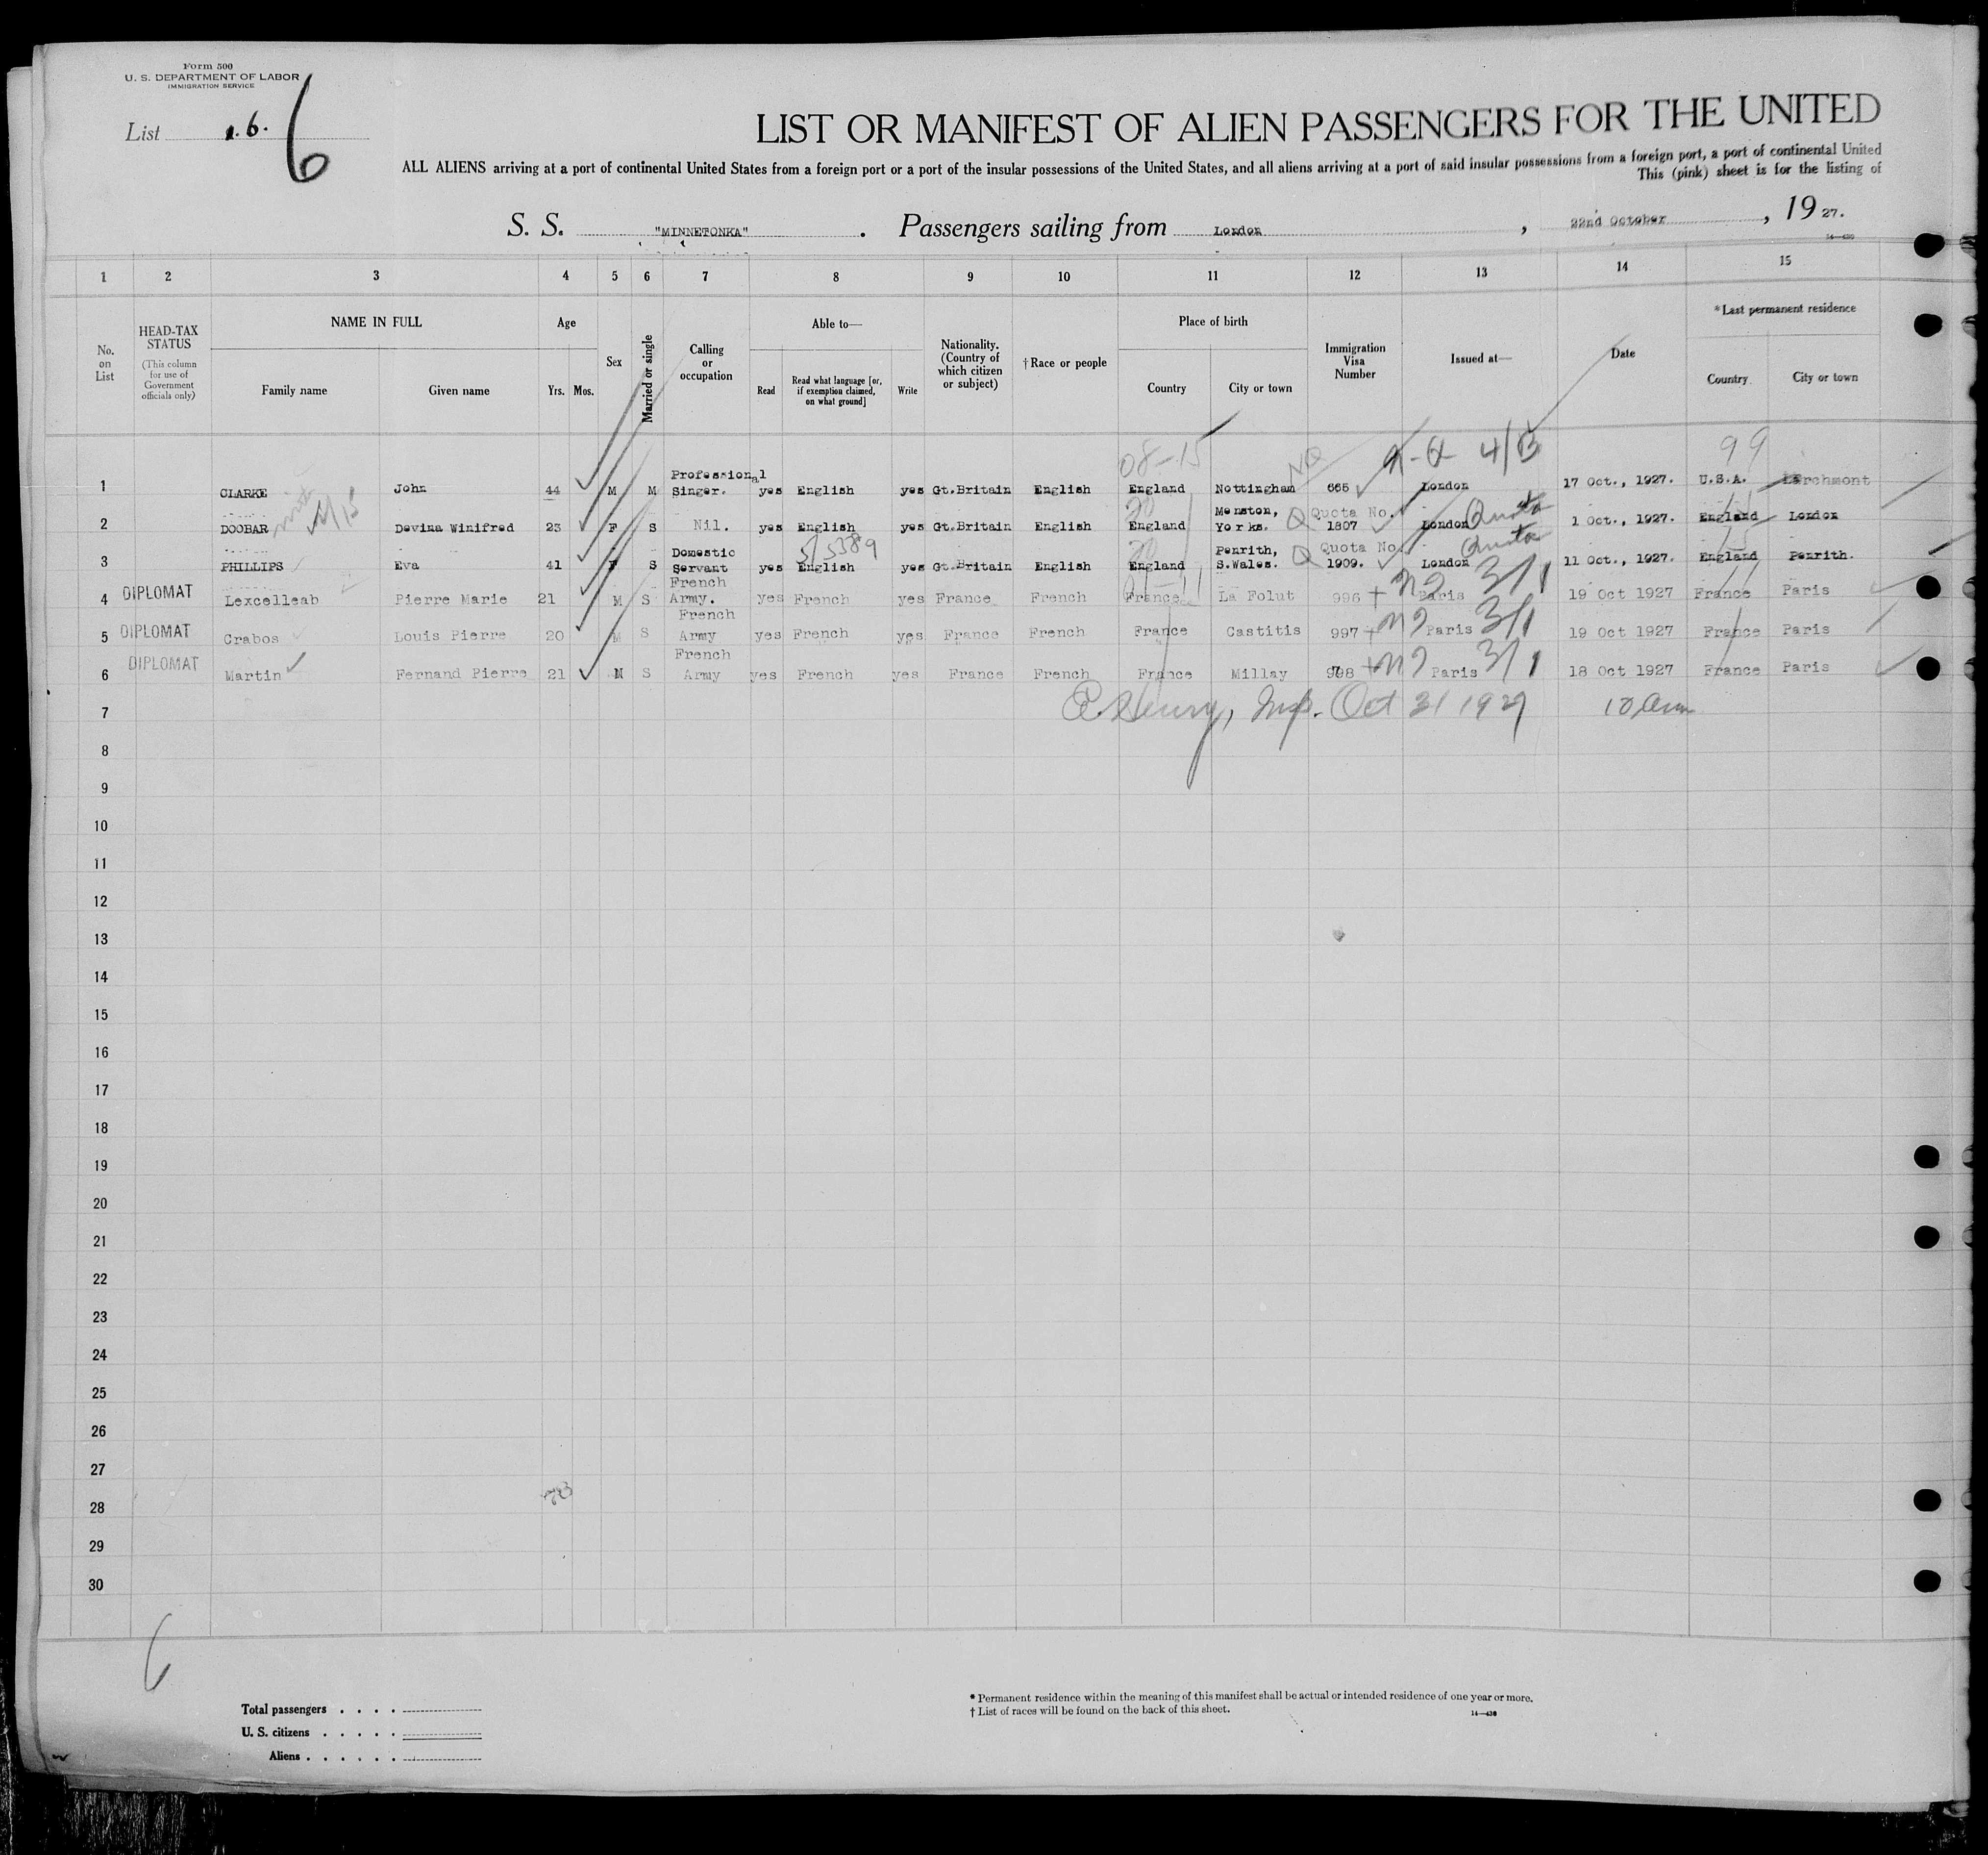 Form 500
U. S. DEPARTMENT OF LABOR
IMMIGRATION SERVICE
List 1.6. 6
LIST OR MANIFEST OF ALIEN PASSENGERS FOR THE UNITED
ALL ALIENS arriving at a port of continental United States from a foreign port or a port of the insular possessions of the United States, and all aliens arriving at a port of said insular possessions from a foreign port, a port of continental United
This (pink) sheet is for the listing of
S. S. "MINNETONKA". Passengers sailing from London, 22nd October, 1927.
14—430
1 2 3 4 5 6 7 8 9 10 11 12 13 14 15
No. on List
HEAD-TAX STATUS
(This column for use of Government officials only)
NAME IN FULL
Family name Given name
Age
Yrs. Mos.
Sex
Married or single
Calling or occupation
Able to—
Read
Read what language [or, if exemption claimed, on what ground]
Write
Nationality. (Country of which citizen or subject)
† Race or people
Place of birth
Country City or town
Immigration Visa Number
Issued at—
Date
* Last permanent residence
Country City or town
08-15 NQ 4/B 99
1 CLARKE John 44 M M Professional Singer. yes English yes Gt.Britain English England Nottingham 665 London 17 Oct., 1927. U.S.A. Larchmont
2 DOOBAR Devina Winifred 23 F S Nil. yes English yes Gt.Britain English England Menston, Yorks. Q Quota No. 1807 London Quota 1 Oct., 1927. England London
5/5389
3 PHILLIPS Eva 41 F S Domestic Servant yes English yes Gt.Britain English England Penrith, S.Wales. Q Quota No. 1909. London Quota 11 Oct., 1927. England Penrith.
4 DIPLOMAT Lexcelleab Pierre Marie 21 M S French Army. yes French yes France French France La Folut 996 Paris 3/1 19 Oct 1927 France Paris
5 DIPLOMAT Crabos Louis Pierre 20 M S French Army yes French yes France French France Castitis 997 Paris 3/1 19 Oct 1927 France Paris
6 DIPLOMAT Martin Fernand Pierre 21 M S French Army yes French yes France French France Millay 998 Paris 3/1 18 Oct 1927 France Paris
7 Henry, Insp. Oct 31 1927 10 am
8
9
10
11
12
13
14
15
16
17
18
19
20
21
22
23
24
25
26
27
28
29
30
6
Total passengers . . . .
U. S. citizens . . . . .
Aliens . . . . . .
* Permanent residence within the meaning of this manifest shall be actual or intended residence of one year or more.
† List of races will be found on the back of this sheet.
14—430